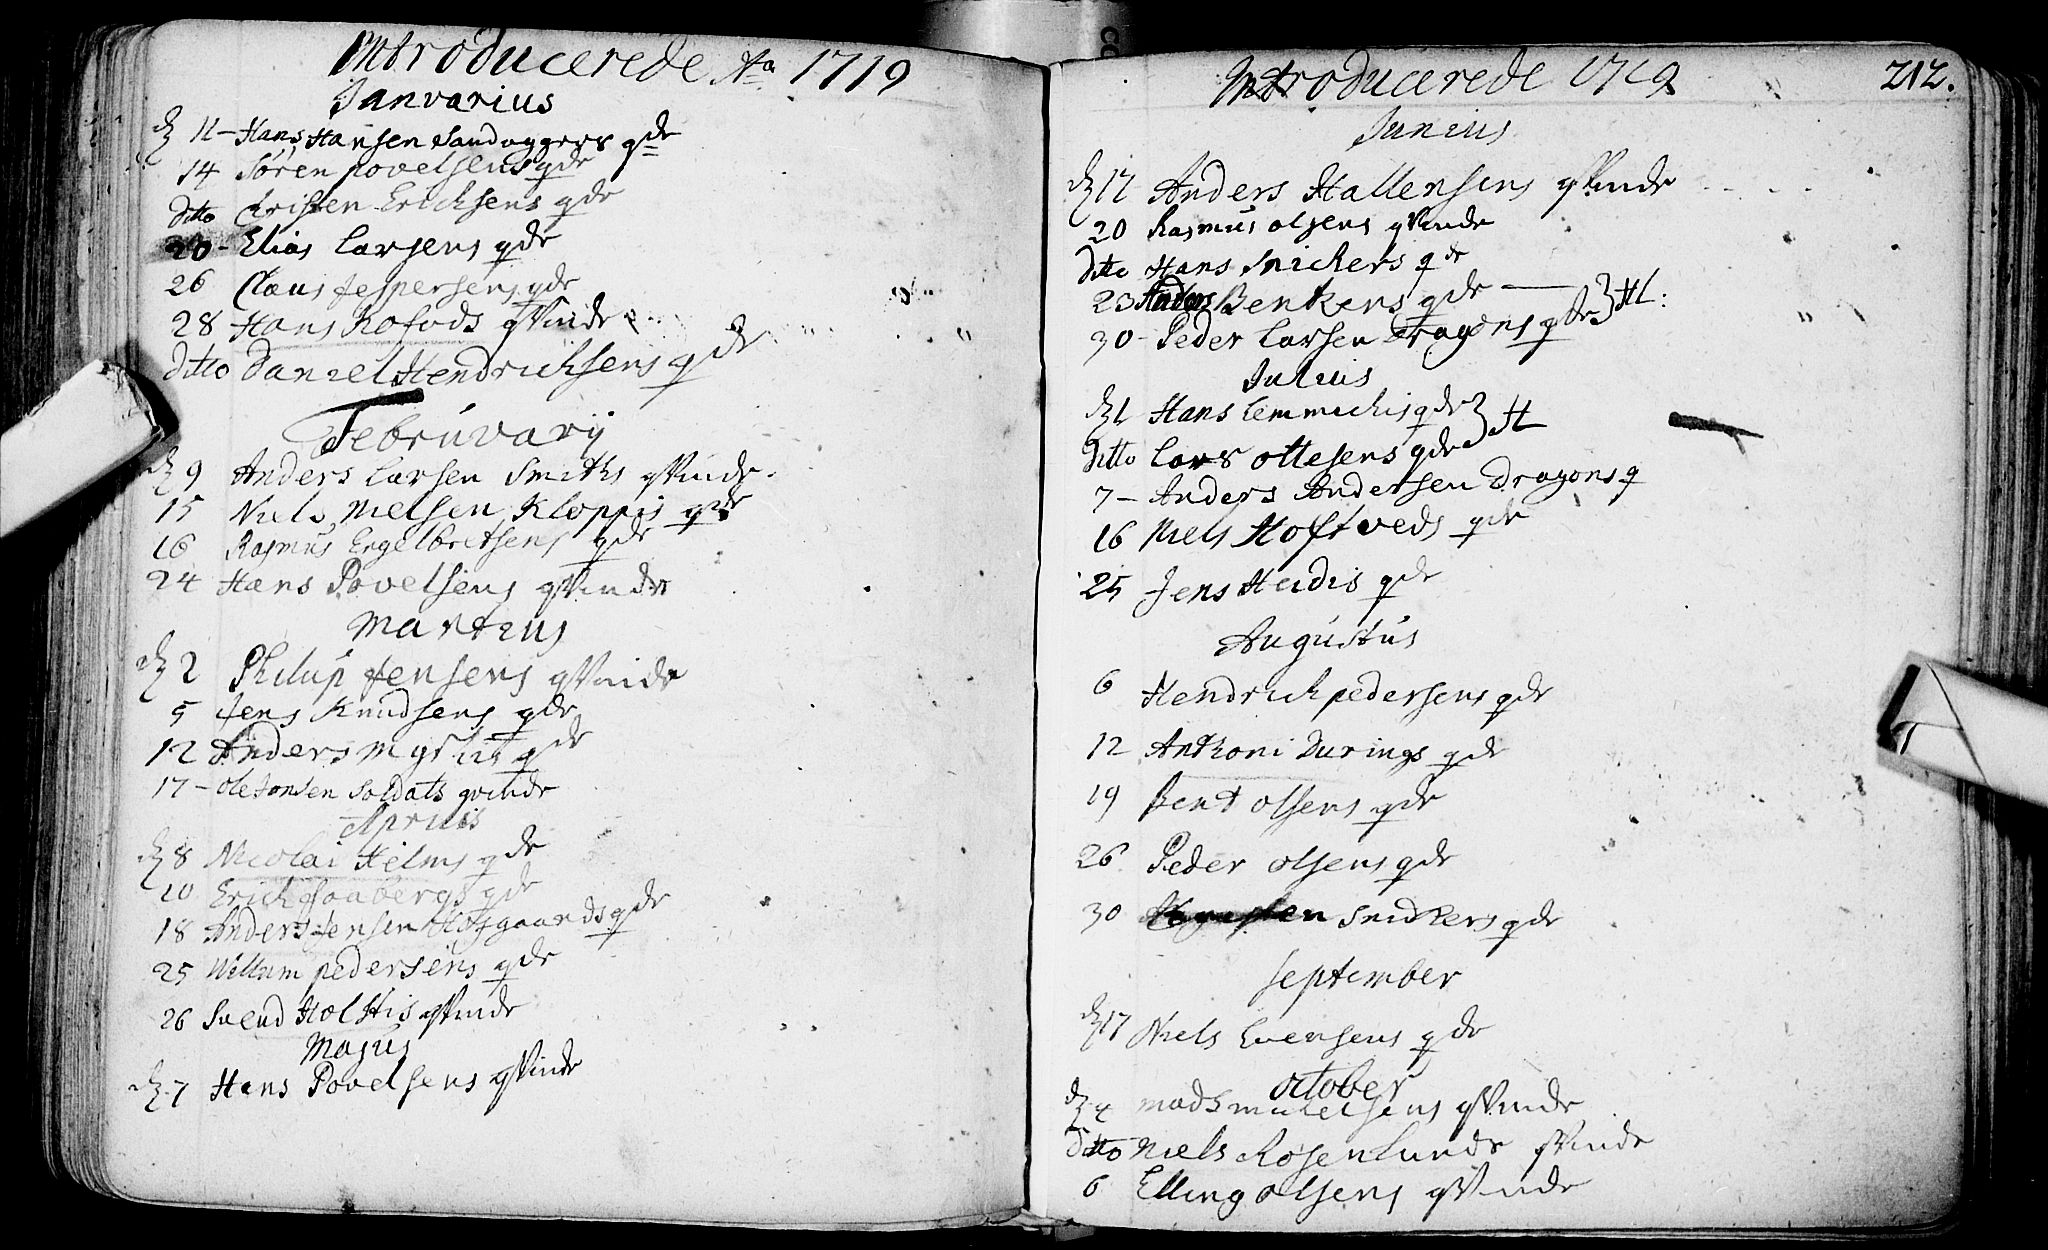 Introducerede Ao 1719
Janvarius
d 11 - Hans Hansen Sandaggers qde
14 Søren povelsens qde
ditto Christen Ericksens qde
20 - Elias Larsens qde
26 Claus Jespersens qde
28 Hans Kofods qvinde
ditto Daniel Hendricksens qde
Februvarij
d 9 Anders Larsen Smiths qvinde.
15 Niels Nielsen Kloppis qde
16 Rasmus Engelbretsens qde
24 Hans Povelsens qvinde
Martius
d 2 Philup Jensens qvinde
5 Jens Knudsens qde
12 Anders qde
17 - Ole Jonsen Soldats qvinde
Aprilis
d 8 Nicolai Hielms qde
10 Erich Saabergs qde
18 Anders Jensen Hofgaards qde
25 Willum pedersens qde
26 Svend Holstis qvinde
Majus
d 7 Hans Povelsens qvinde
Introducerede 1719
212.
Junius
d 12 Anders Hallensens qvinde
20 Rasmus olsens qvinde
ditto Hans Snickers qde
23 Anders Benkens qde
30 - Peder Larsen Dragons qde
Julius
d 1 Hans Lemmichis qde
ditto Lars Ottesens qde
7 - Anders Andersen Dragons q
16 Niels Hoftveds qde
25 Jens Heidis qde
Augustus
6 Hendrich pedersens qde
12 Anthoni Durings qde
19 Bent olsens qde
26 Peder olsens qde
30 Snidkers qde
September
d 17 Niels Evensens qde
October
d 4 mads mickelsens qvinde
Ditto Niels Rosenlunds qvinde
6 Elling olsens qvinde